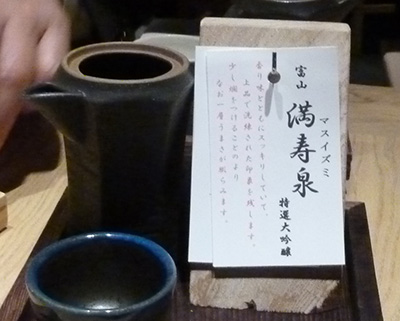 富山
マスイズミ
満寿泉
特選大吟醸
香り味とともにスッキリしていて、
上品で洗練された印象を残します。
少し燗をつけることのより
なお一層うまさが脹らみます。